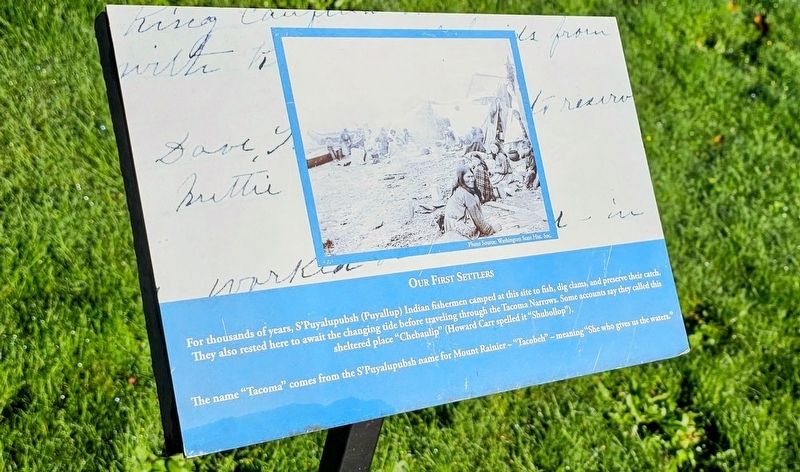 King
from
with
to reserv
Dave,
Nuttie
in
worked
Photo Source, Washington State Hist. Soc.
OUR FIRST SETTLERS
For thousands of years, S'Puyalupubsh (Puyallup) Indian fishermen camped at this site to fish, dig clams, and preserve their catch.
They also rested here to await the changing tide before traveling through the Tacoma Narrows. Some accounts say they called this
sheltered place "Chebaulip" (Howard Carr spelled it "Shubollop").
The name "Tacoma" comes from the S'Puyalupubsh name for Mount Rainier – "Tacobeh" – meaning "She who gives us the waters."